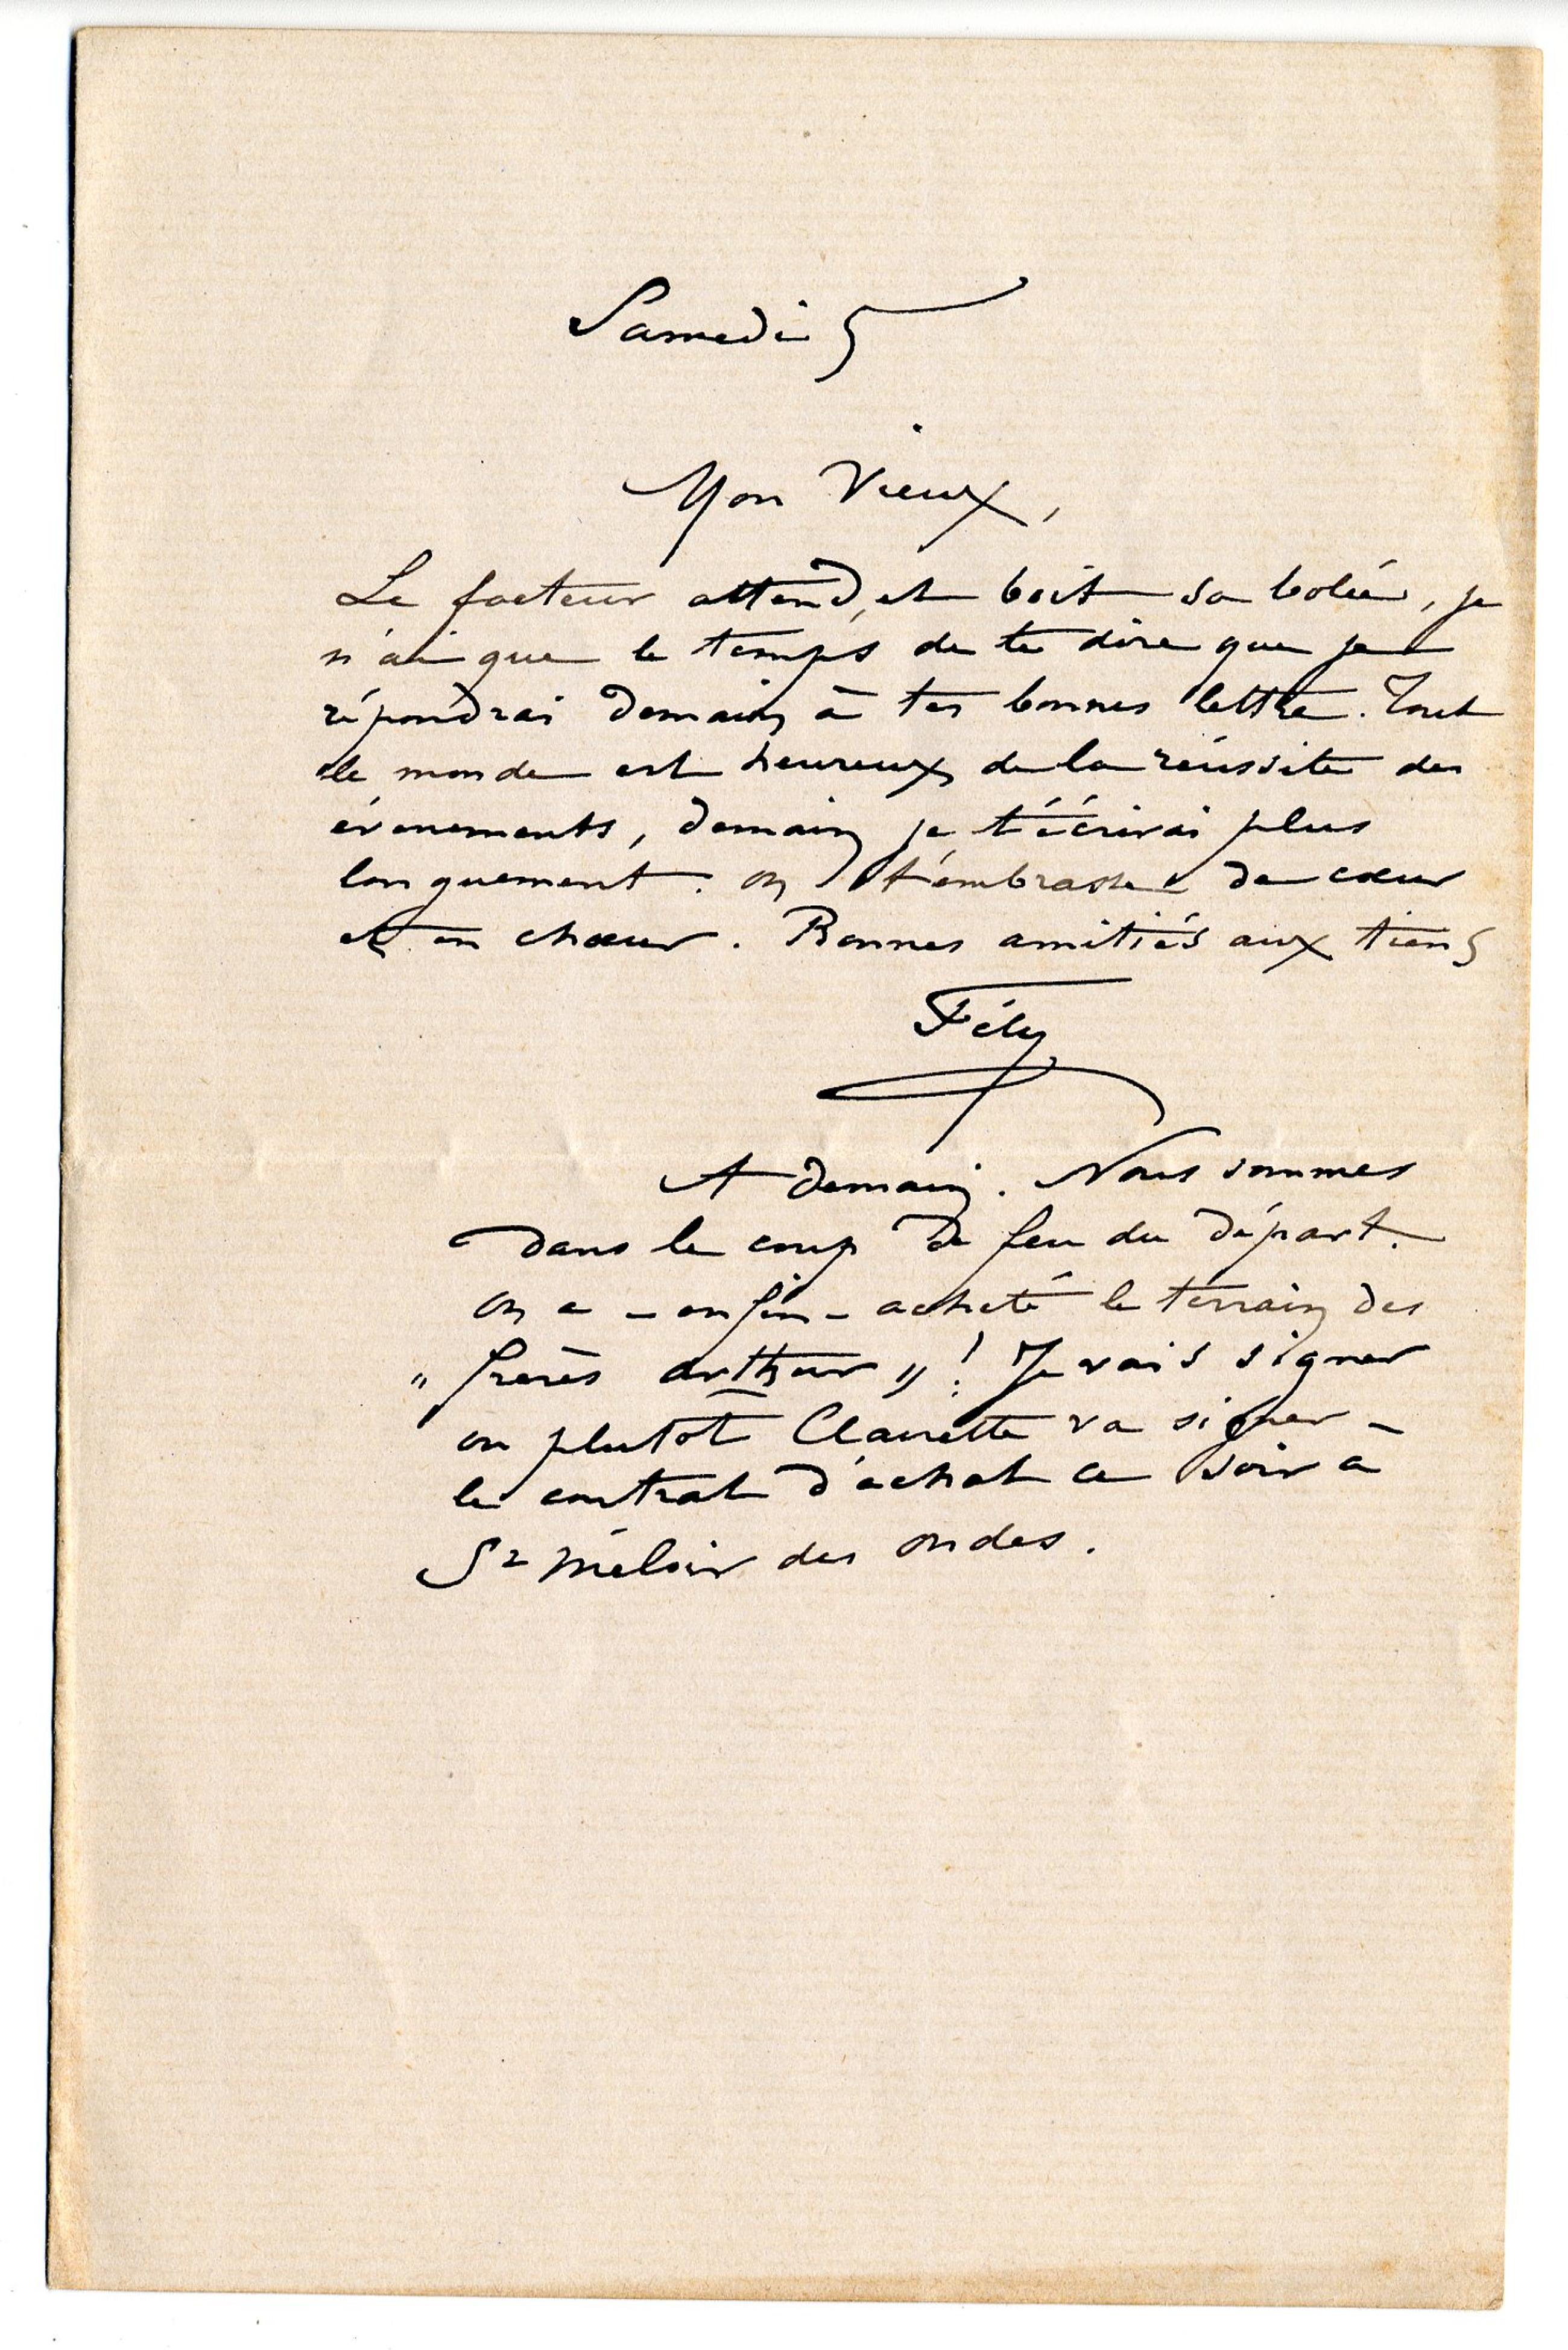 Samedi 5
Mon Vieux,
Le facteur attend, et boit sa bolée, je
n'ai que le temps de te dire que je
répondrai demain à tes bonnes lettre. Tout
le monde est heureux de la réussite des
évenements, demain je t'écrirai plus
longuement. on t'embrasse de cœur
et en chœur. Bonnes amitiés aux tiens
Fély
A demain. Nous sommes
dans le coup de feu du départ.
on a – enfin – acheté le terrain des
" frères arthur " ! Je vais signer
ou plutôt Clairette va signer –
le contrat d'achat ce soir à
St Méloir des ondes.